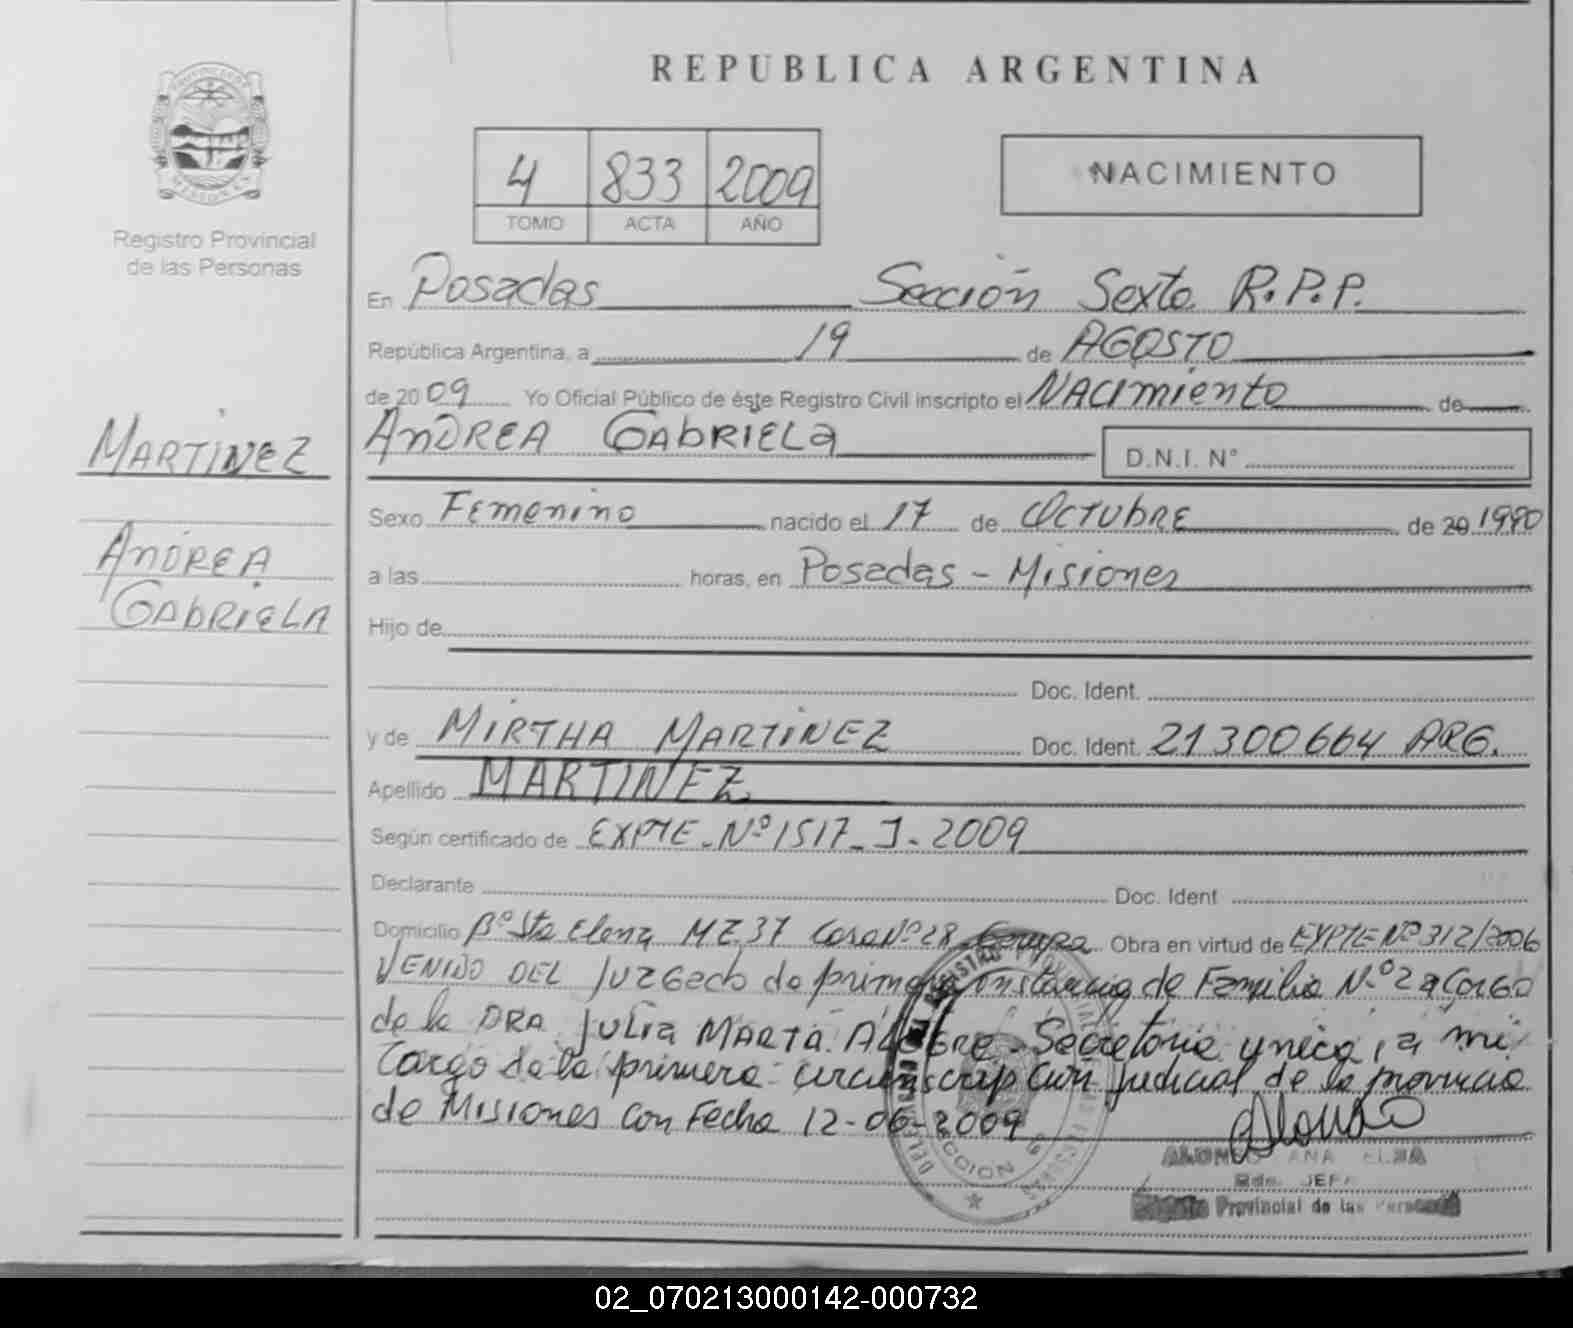 REPUBLICA ARGENTINA
4 833 2009
TOMO ACTA AÑO
NACIMIENTO
MISIONES
Registro Provincial
de las Personas
En Posadas Sección Sexta R.P.P.
República Argentina, a 19 de AGOSTO
de 2009 Yo Oficial Público de éste Registro Civil inscripto el NACIMIENTO de
ANDREA GABRIELA D.N.I. N°
MARTINEZ
Sexo Femenino nacido el 17 de OCTUBRE de 20 1990
ANDREA
GABRIELA
a las horas, en Posadas - Misiones
Hijo de
Doc. Ident.
y de MIRTHA MARTINEZ Doc. Ident. 21300664 ARG.
Apellido MARTINEZ
Según certificado de EXPTE. Nº 1517_J-2009
Declarante Doc. Ident
Domicilio Bº Sta Elena MZ.37 Casa Nº 28 Garupa Obra en virtud de EXPTE Nº 312/2006
VENIDO DEL Juzgado de primera instancia de Familia N.º 2 a Cargo
de la DRA Julia MARTA ALEGRE - Secretaria unica, a mi
cargo de la primera circunscripcion judicial de la provincia
de Misiones con Fecha 12-06-2009
ALONSO ANA ELBA
JEFA
Registro Provincial de las Personas
02_070213000142-000732